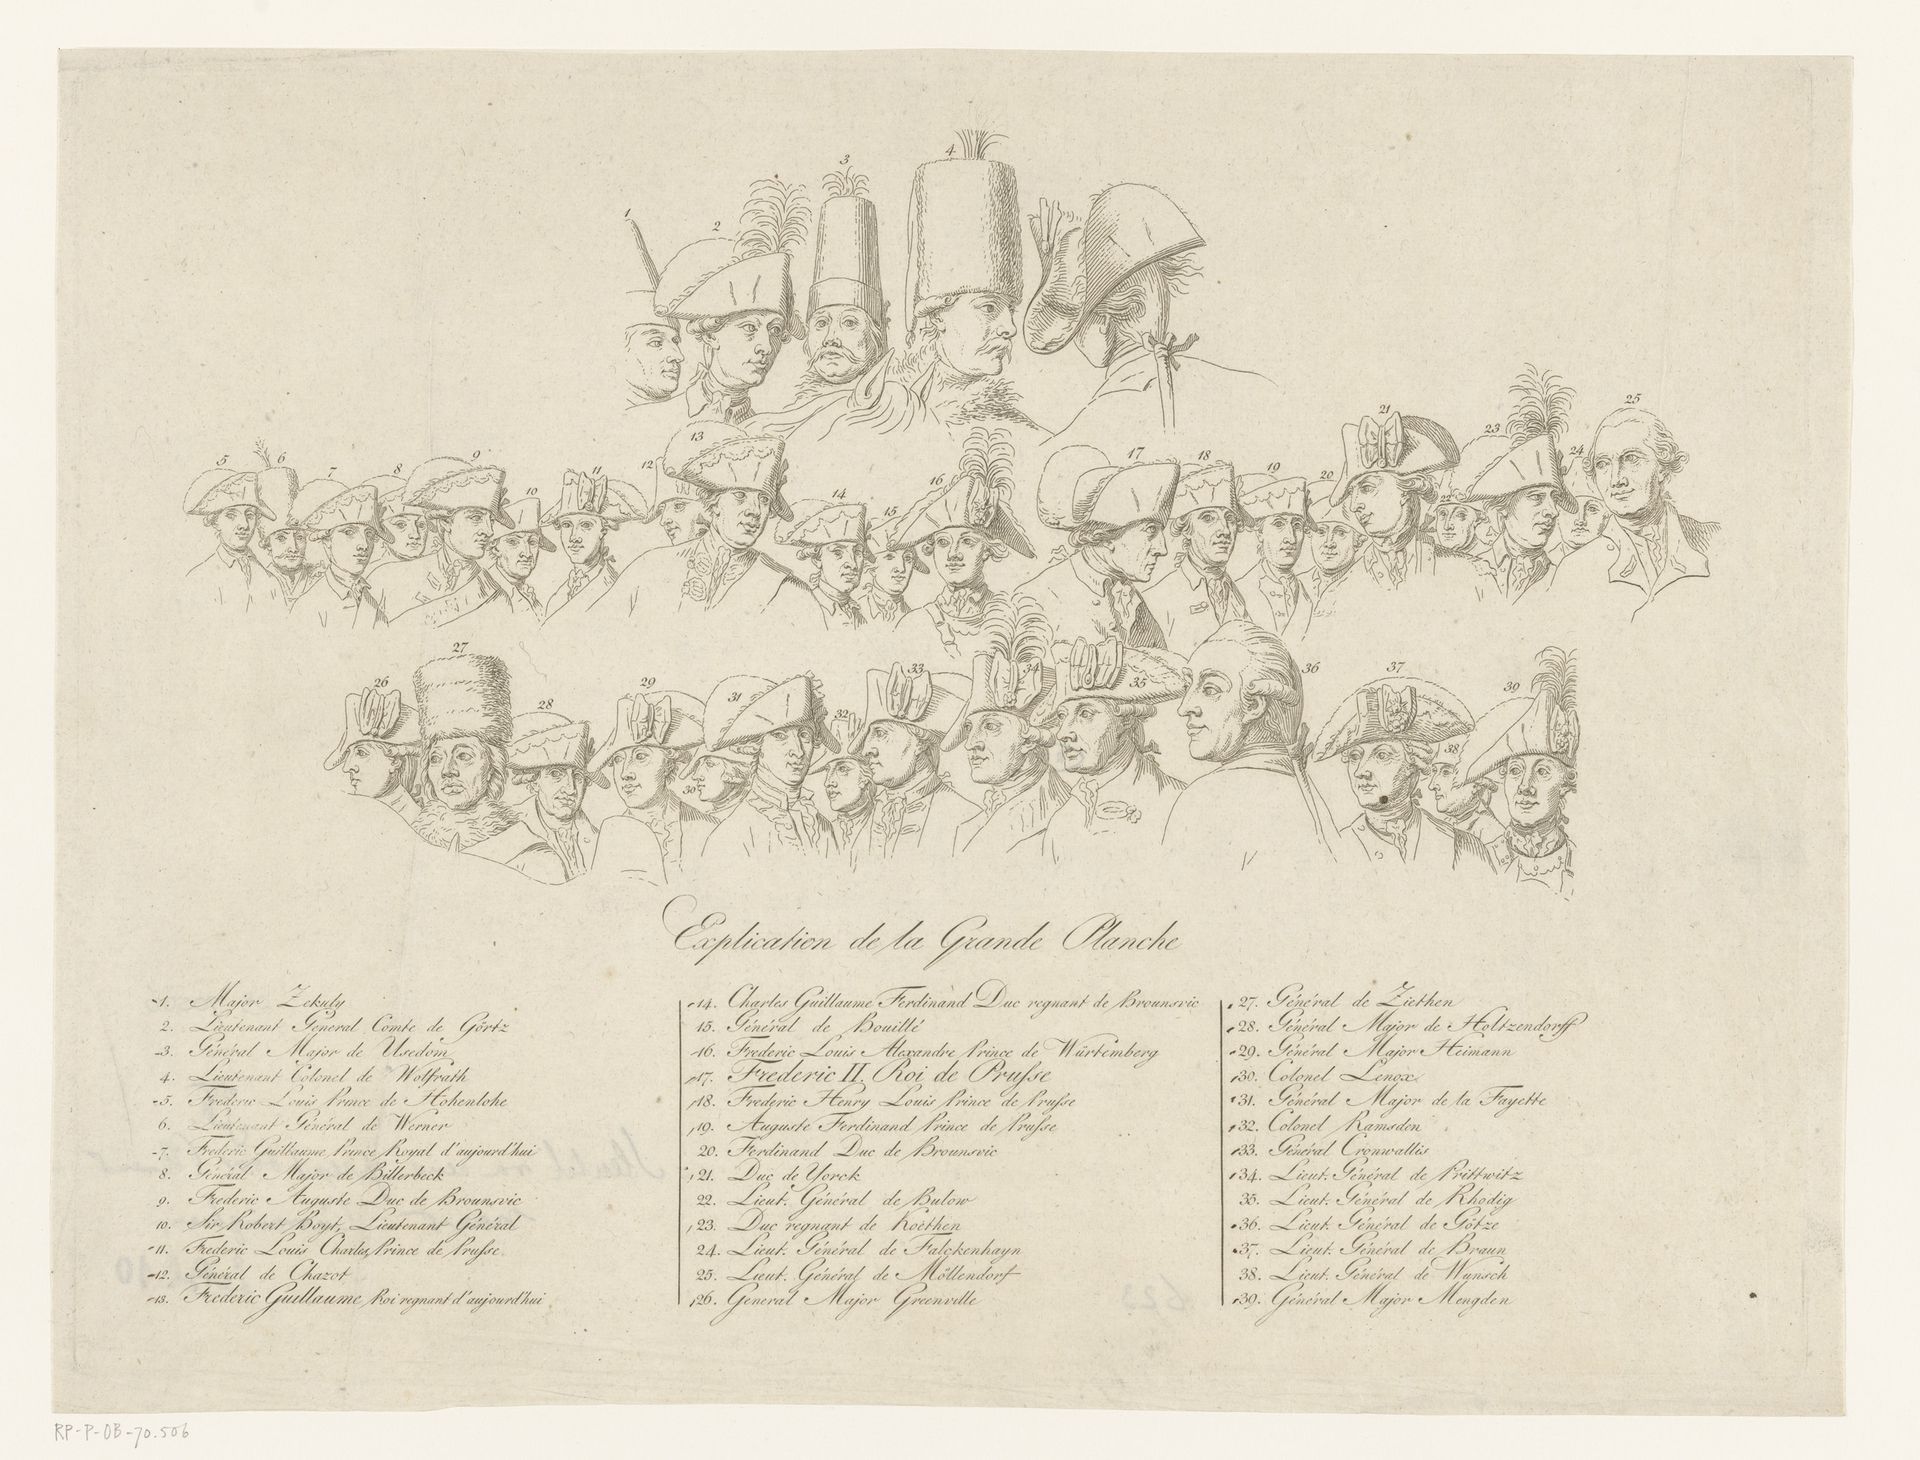 1
2
3
4
5
6
7
8
9
10
11
12
13
14
15
16
17
18
19
20
21
22
23
24
25
26
27
28
29
30
31
32
33
34
35
36
37
38
39
Explication de la Grande Planche
1. Major Zekuly
2. Lieutenant General Comte de Görtz
3. Général Major de Usedom
4. Lieutenant Colonel de Wolfrath
5. Frederic Louis Prince de Hohenlohe
6. Lieutenant Général de Werner
7. Frederic Guillaume Prince Royal d'aujourd'hui
8. Général Major de Billerbeck
9. Frederic Auguste Duc de Brounsvic
10. Sir Robert Boyt, Lieutenant Général
11. Frederic Louis Charles Prince de Prusse.
12. Général de Chazot
13. Frederic Guillaume Roi regnant d'aujourd'hui
14. Charles Guillaume Ferdinand Duc regnant de Brounsvic
15. Général de Bouillé
16. Frederic Louis Alexandre Prince de Würtemberg
17. Frederic II. Roi de Prusse
18. Frederic Henry Louis Prince de Prusse
19. Auguste Ferdinand Prince de Prusse
20. Ferdinand Duc de Brounsvic
21. Duc de Yorck
22. Lieut. Général de Bulow
23. Duc regnant de Koethen
24. Lieut. Général de Falckenhayn
25. Lieut. Général de Möllendorf
26. General Major Greenville
27. Général de Ziethen
28. Général Major de Holtzendorff
29. Général Major Heimann
30. Colonel Lenox
31. Général Major de la Fayette
32. Colonel Ramsden
33. Général Cronwallis
34. Lieut. Général de Prittwitz
35. Lieut. Général de Rhodig
36. Lieut. Général de Götze
37. Lieut. Général de Braun
38. Lieut. Général de Wunsch
39. Général Major Mengden
RP-P-OB-70.506